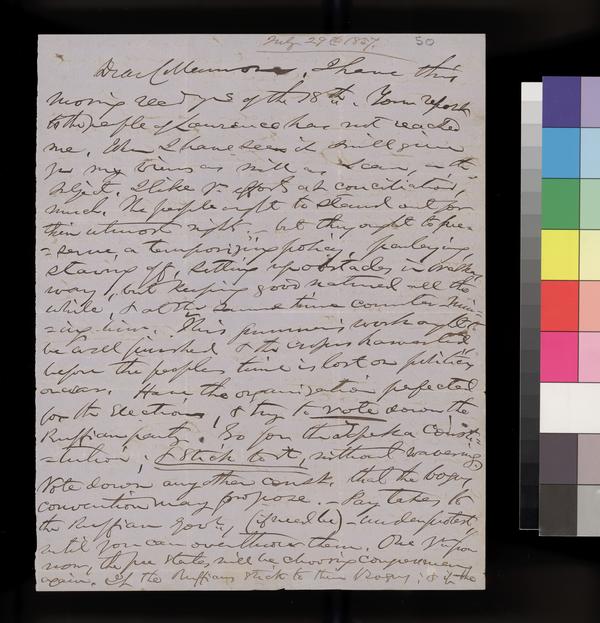 July 29th 1857.
50
Dear C Memmore, I have this
moving recd yrs of the 18th. Your report
to the people of Lawrence has not reached
me. When I have seen it I will give
you my views as well as I can, on the
subject. I like yr efforts at conciliation,
much. The people ought to stand out for
their utmost right, - but they ought to pre=
=serve a temporizing policy, parleying,
staving off, setting up obstacles in
way, but keeping good natured all the
while, & at the same time counter min=
=ing him. This summer's work ought to
be well finished & the crops harvested
before the peoples time is lost on politics
or war. Have the organization perfected
for the Elections, & try to vote down the
Ruffian party. Go for the Topeka Consti=
=tution; & stick to it, without wavering.
Vote down any other consti. that the bogus
convention may propose. - Pay taxes to
the Ruffian Govt., (if need be) - under protest,
until you can overthrow them. One yr from
now, the free states will be choosing Congressmen
again. If the Ruffians stick to their Bogus; & if the